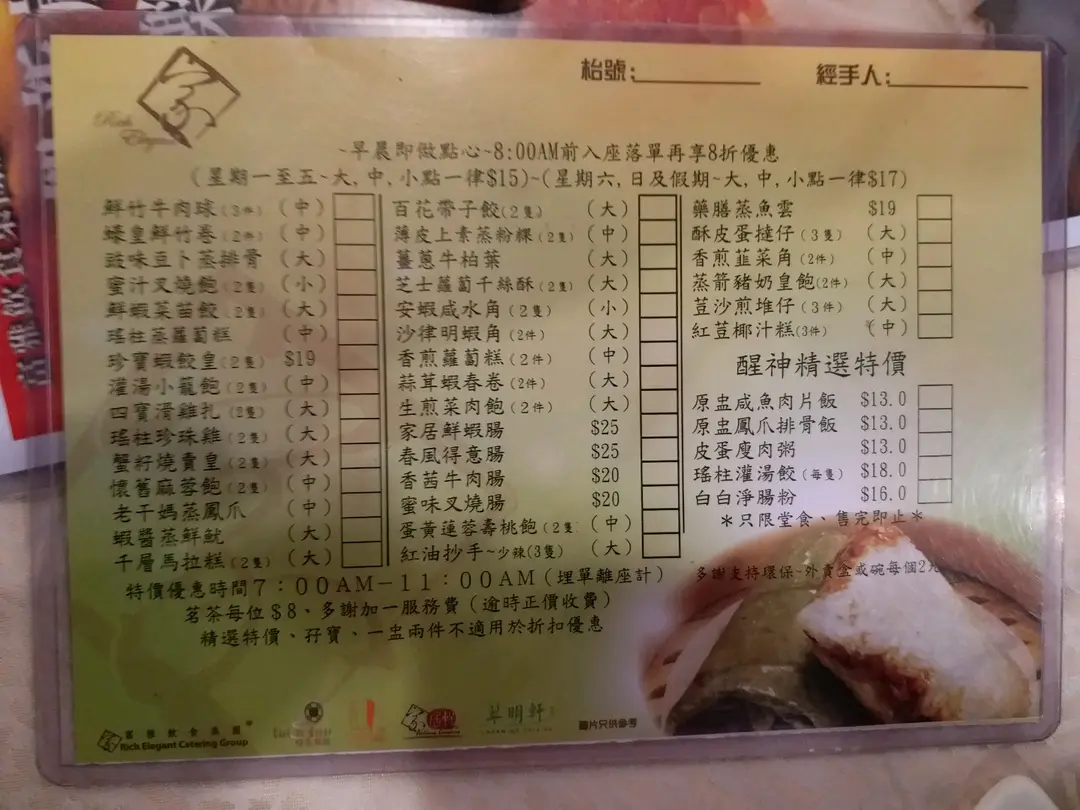 Rich
Elegant
枱號：
經手人：
~早晨即做點心~8:00AM前入座落單再享8折優惠
(星期一至五~大,中,小點一律$15)~(星期六,日及假期~大,中,小點一律$17)
鮮竹牛肉球(3件) (中)
蠔皇鮮竹卷(2件) (中)
豉味豆卜蒸排骨 (大)
蜜汁叉燒飽(2隻) (小)
鮮蝦菜苗餃(2隻) (大)
瑤柱蒸蘿蔔糕 (中)
珍寶蝦餃皇(2隻) $19
灌湯小籠飽(2隻) (中)
四寶滑雞扎(2隻) (大)
瑤柱珍珠雞(2隻) (大)
蟹籽燒賣皇(2隻) (大)
懷舊麻蓉飽(2隻) (中)
老干媽蒸鳳爪 (中)
蝦醬蒸鮮魷 (大)
千層馬拉糕(2隻) (大)
百花帶子餃(2隻) (大)
薄皮上素蒸粉粿(2隻) (中)
薑蔥牛柏葉 (大)
芝士蘿蔔千絲酥(2隻) (大)
安蝦咸水角(2隻) (小)
沙律明蝦角(2件) (大)
香煎蘿蔔糕(2件) (中)
蒜茸蝦春卷(2件) (大)
生煎菜肉飽(2件) (大)
家居鮮蝦腸 $25
春風得意腸 $25
香茜牛肉腸 $20
蜜味叉燒腸 $20
蛋黃蓮蓉壽桃飽(2隻 (中)
紅油抄手~少辣(3隻) (大)
藥膳蒸魚雲 $19
酥皮蛋撻仔(3隻) (大)
香煎韮菜角(2件) (中)
蒸箭豬奶皇飽(2件) (大)
荳沙煎堆仔(3件) (大)
紅荳椰汁糕(3件) (中)
醒神精選特價
原盅咸魚肉片飯 $13.0
原盅鳳爪排骨飯 $13.0
皮蛋瘦肉粥 $13.0
瑤柱灌湯餃(每隻) $18.0
白白淨腸粉 $16.0
*只限堂食、售完即止*
特價優惠時間7:00AM-11:00AM(埋單離座計)
茗茶每位$8、多謝加一服務費(逾時正價收費)
精選特價、孖寶、一盅兩件不適用於折扣優惠
多謝支持環保~外賣盒或碗每個2元
富雅飲食集團
Rich Elegant Catering Group
圖片只供參考